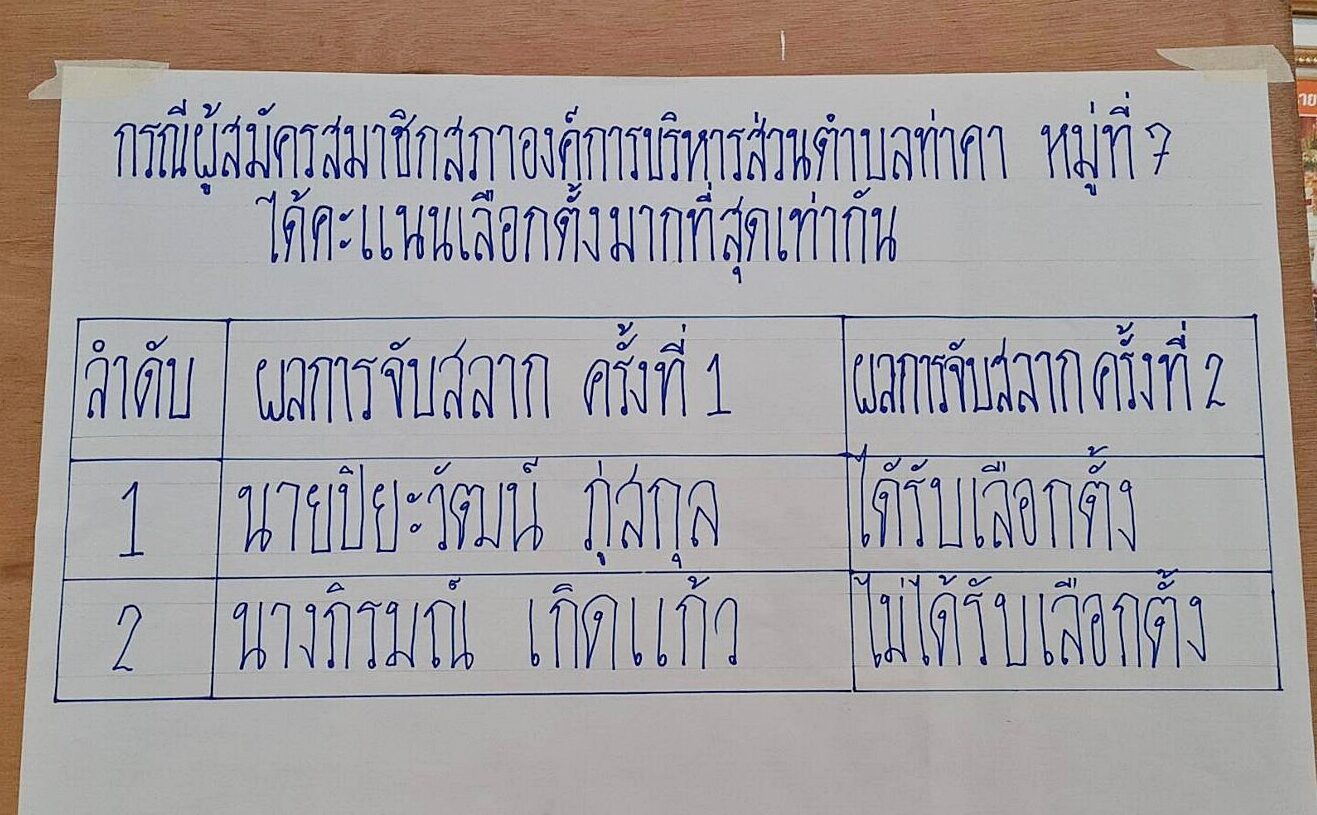 กรณีผู้สมัครสมาชิกสภาองค์การบริหารส่วนตำบลท่าคา หมู่ที่ 7
ได้คะแนนเลือกตั้งมากที่สุดเท่ากัน
ลำดับ ผลการจับสลาก ครั้งที่ 1 ผลการจับสลากครั้งที่ 2
1 นายปิยะวัฒน์ ภู่สกุล ได้รับเลือกตั้ง
2 นางภิรมณ์ เกิดแก้ว ไม่ได้รับเลือกตั้ง